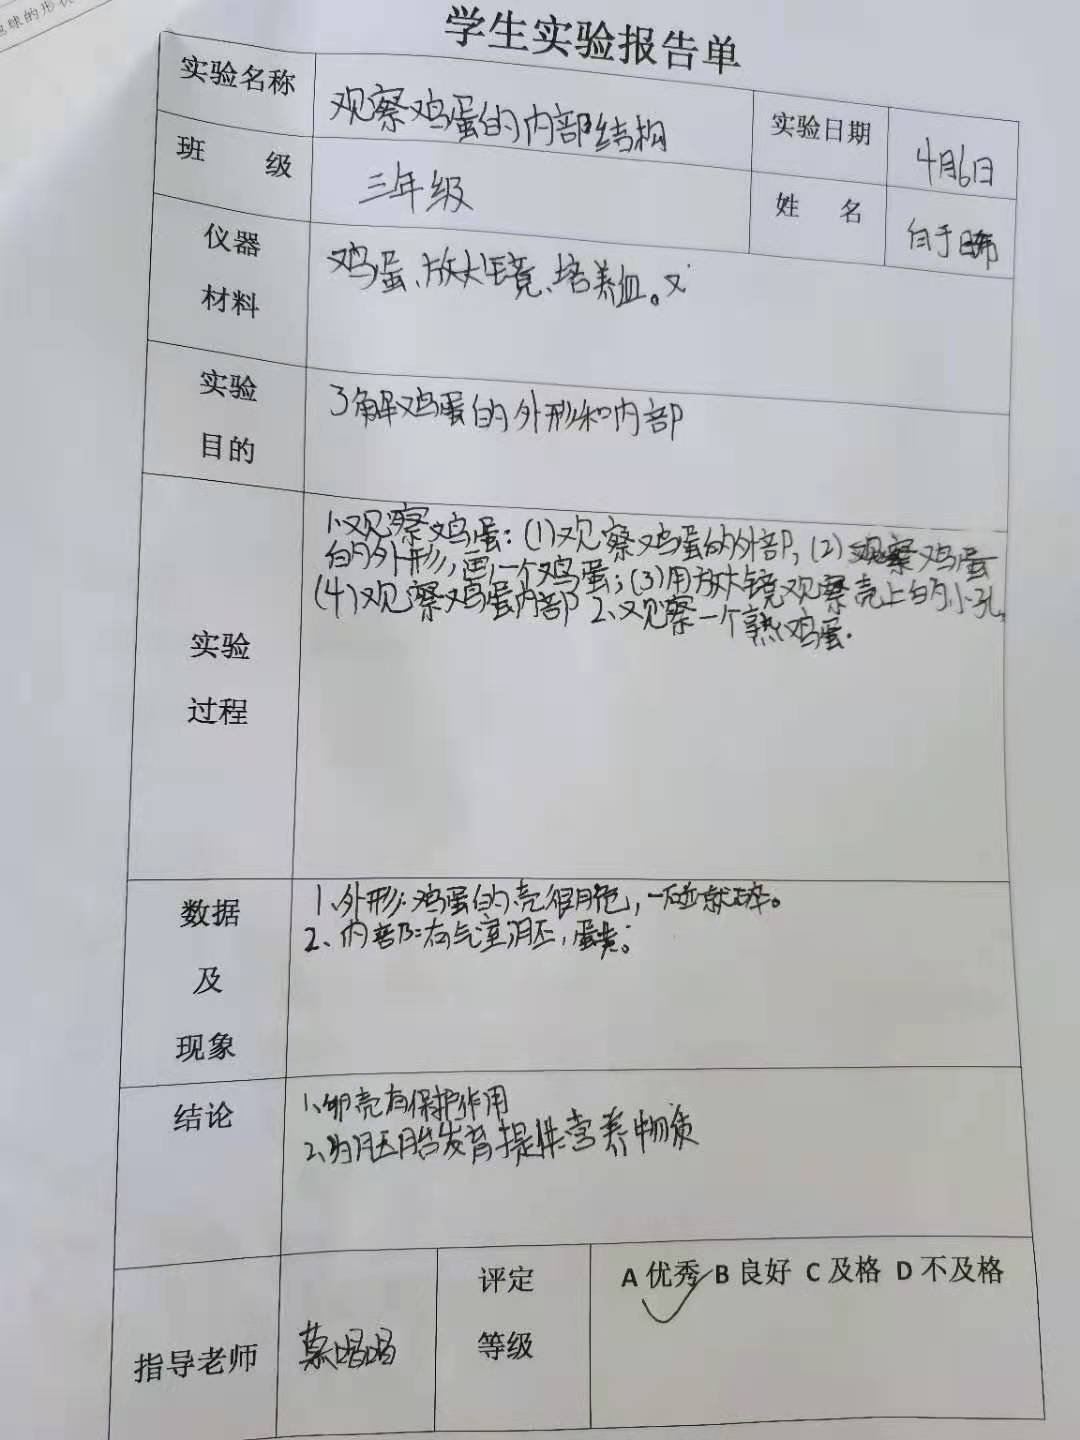 球的形状
学生实验报告单
实验名称 观察鸡蛋的内部结构 实验日期 4月6日
班 级 三年级 姓 名
仪器材料 鸡蛋、放大镜、培养皿。
实验目的 了解鸡蛋的外形和内部
实验过程
1、观察鸡蛋:(1)观察鸡蛋的外部,(2)观察鸡蛋
的外形,画一个鸡蛋;(3)用放大镜观察壳上的小孔,
(4)观察鸡蛋内部 2、观察一个熟鸡蛋.
数据及现象
1、外形:鸡蛋的壳很脆,一碰就碎。
2、内部:有气室,蛋黄。
结论
1、卵壳有保护作用
2、为胚胎发育提供营养物质
指导老师 评定等级 A 优秀 B 良好 C 及格 D 不及格